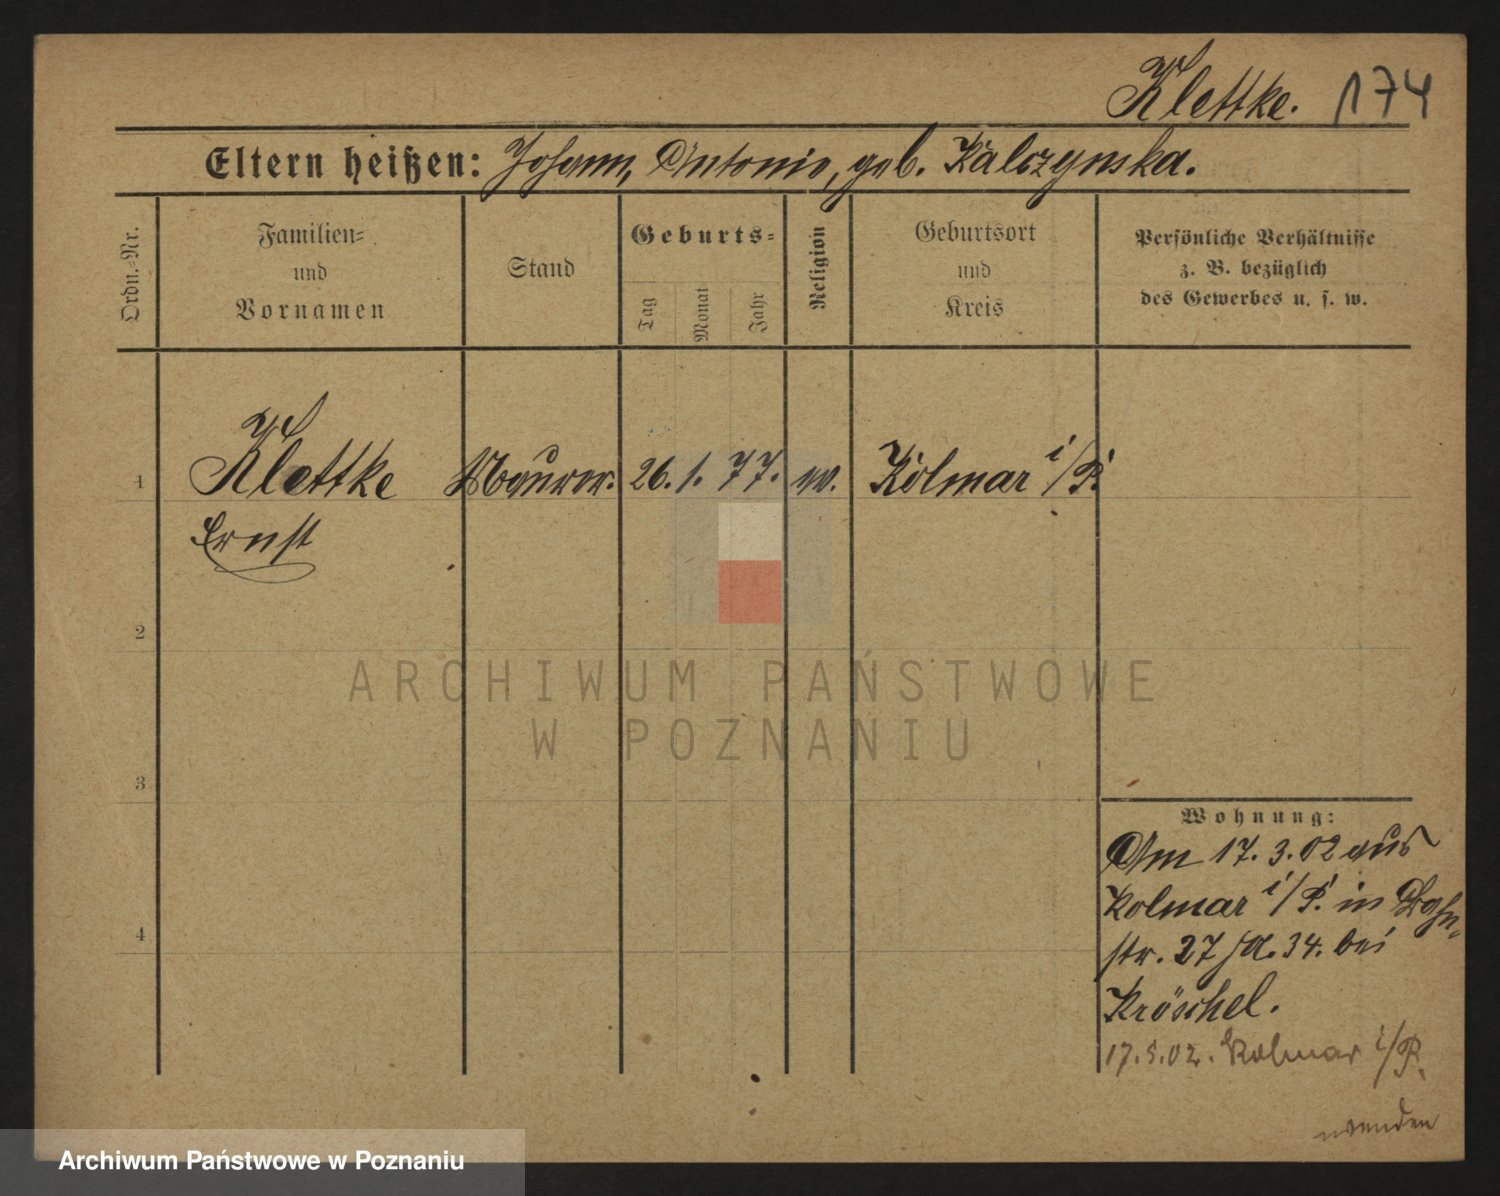 Klettke. 174
Eltern heißen: Johann, Antonie, geb. Kalczynska.
Ordn.-Nr.
Familien-
und
Vornamen
Stand
Geburts-
Tag
Monat
Jahr
Religion
Geburtsort
und
Kreis
Persönliche Verhältnisse
z. B. bezüglich
des Gewerbes u. s. w.
1 Klettke Maurer. 26. 1. 77. ev. Kolmar i/P.
Ernst
2
3
4
ARCHIWUM PAŃSTWOWE
W POZNANIU
Wohnung:
Am 17. 3. 02 aus
Kolmar i/P. in Bahn-
str. 27 34. bei
Kröschel.
17.5.02. Kolmar i/P.
wenden
Archiwum Państwowe w Poznaniu